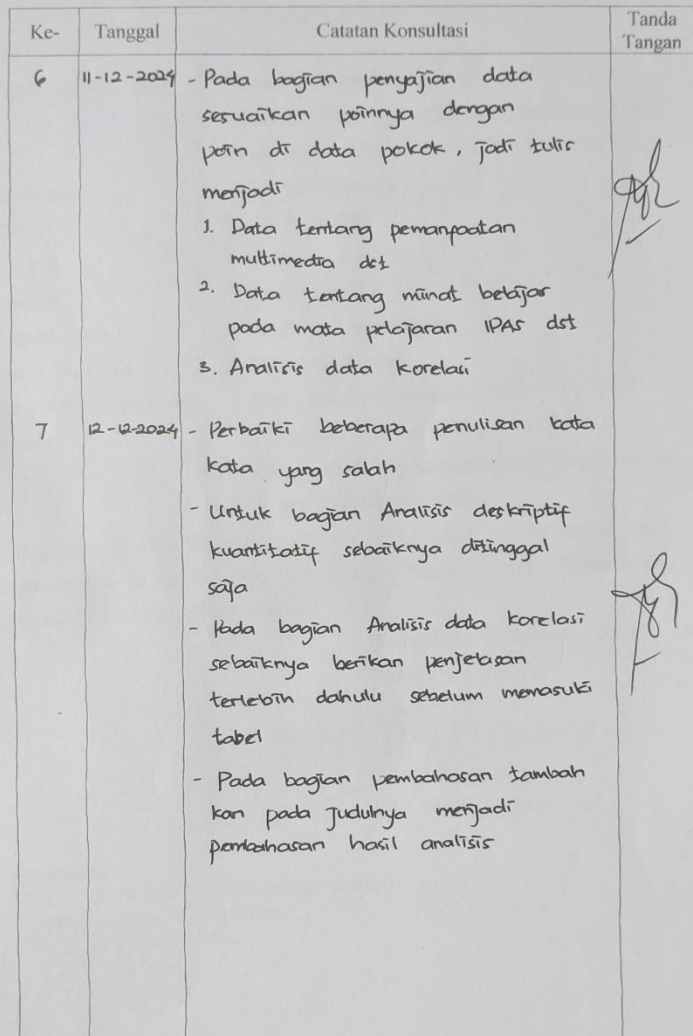 Ke- Tanggal Catatan Konsultasi Tanda Tangan
6 11-12-2024 - Pada bagian penyajian data
sesuaikan poinnya dengan
poin di data pokok, jadi tulis
menjadi
1. Data tentang pemanpaatan
multimedia dst
2. Data tentang minat belajar
pada mata pelajaran IPAS dst
3. Analisis data korelasi
7 12-12-2024 - Perbaiki beberapa penulisan kata
kata yang salah
- Untuk bagian Analisis deskriptif
kuantitatif sebaiknya ditinggal
saja
- Pada bagian Analisis data korelasi
sebaiknya berikan penjelasan
terlebih dahulu sebelum memasuki
tabel
- Pada bagian pembahasan tambah
kan pada judulnya menjadi
pembahasan hasil analisis